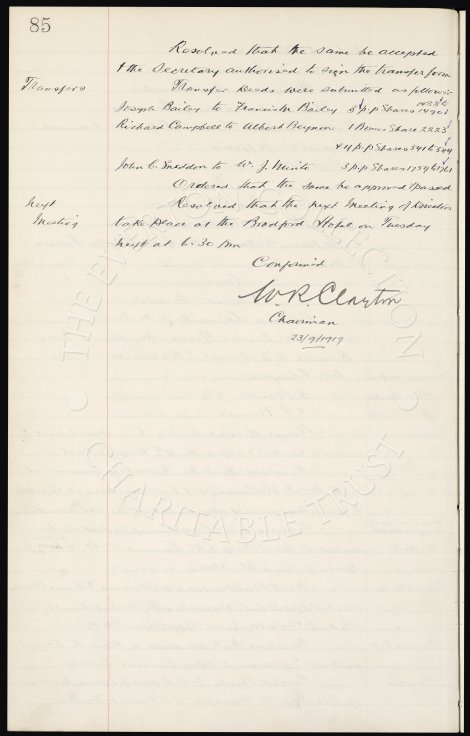 85
Resolved that the same be accepted
& the Secretary authorised to sign the transfer form
Transfers Transfer Deeds were submitted as follows:
Joseph Bailey to Hannah Bailey 5 p.p Shares
Richard Campbell to Albert Beynon 1 Bonus Share 2223
4 p.p Shares 541 to 544
John C. Sneddon to W. J. 3 p.p Shares 1759 to 1761
Ordered that the same be approved & passed
Next Resolved that the next Meeting of Directors
Meeting take place at the Bradford Hotel on Tuesday
next at 6.30 pm
Confirmed
W. R. Clayton
Chairman
23/9/1919
THE EVERTON COLLECTION
CHARITABLE TRUST